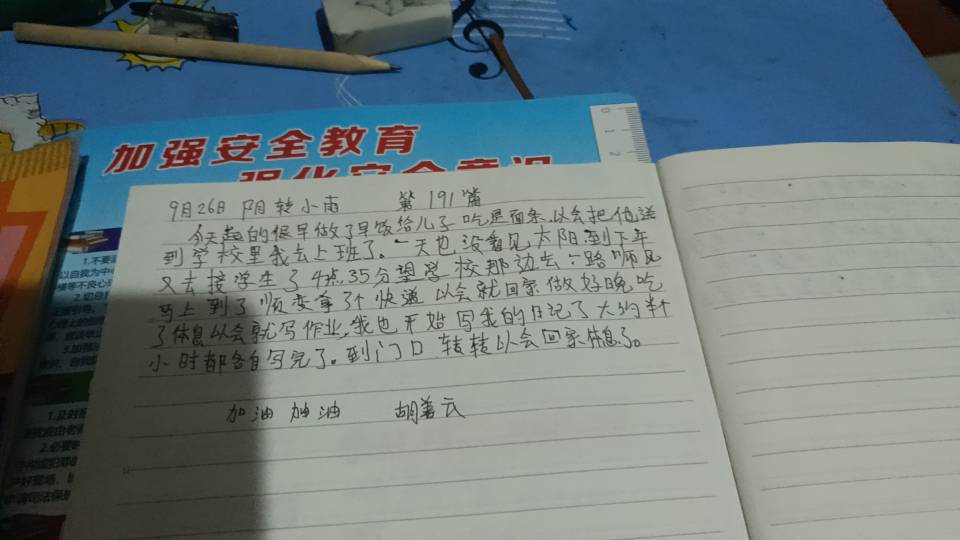 加强安全教育
强化安全意识
9月26日 阴转小雨 第191篇
今天起的很早做了早饭给儿子吃是面条,以会把他送
到学校里我去上班了。一天也没看见太阳,到下午
又去接学生了4点35分望 校那边去一路 风
马上到了顺变拿了个快递 以会就回家做好晚吃
了休息以会就写作业,我也开始写我的日记了大约半个
小时都各自写完了。到门口转转以会回家休息了。
加油加油 胡善云